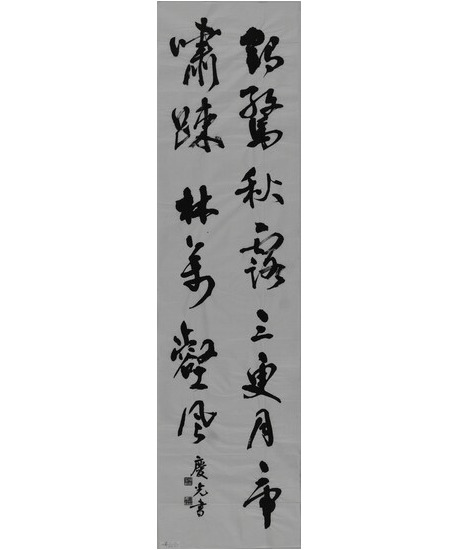 鶴驚秋露三更月帝
嘯踈林萬壑風
慶光書